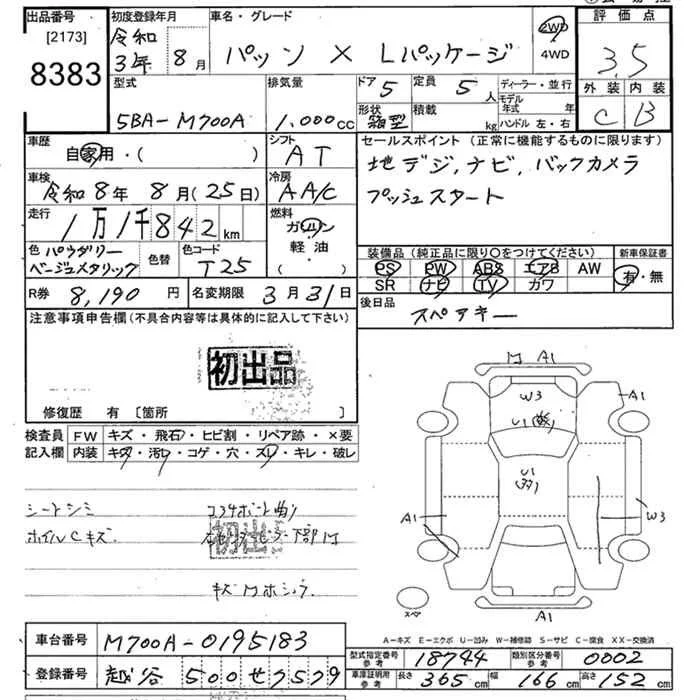 出品番号
[2173]
8383
初度登録年月
令和
3年 8月
車名・グレード
パッソ X Lパッケージ
2WD
4WD
評価点
3.5
外装 内装
C B
型式
5BA-M700A
排気量
1,000cc
ドア 5
形状 箱型
定員 5人
積載 kg
ディーラー・並行
モデル年式 年
ハンドル 左・右
車歴
自家用・( )
シフト
AT
セールスポイント (正常に機能するものに限ります)
地デジ, ナビ, バックカメラ
プッシュスタート
車検
令和8年 8月(25日)
冷房
AA/C
走行
1万1千842km
燃料
ガソリン
軽油
・( )
色 パウダリー
ベージュメタリック
色替
色コード
T25
装備品 (純正品に限り○をつけてください)
PS PW ABS エアB AW
SR ナビ TV カワ
新車保証書
有・無
R券 8,190円
名変期限 3月31日
後日品
スペアキー
注意事項申告欄(不具合内容等は具体的に記入して下さい)
初出品
修復歴 有 〔箇所 〕
検査員
記入欄
FW キズ・飛石・ヒビ割・リペア跡・×要
内装 キズ・汚レ・コゲ・穴・スレ・キレ・破レ
シートシミ
ホイルCキズ
コアサポート曲り
初出品
下部M
キズMホシュウ
M A1
W3
U1
A1
U1
A1
W3
A1
スペア
A-キズ E-エクボ U-凹み W-補修跡 S-サビ C-腐食 XX-交換済
車台番号 M700A-0195183
登録番号 越谷 500せ7579
型式指定番号 参考 18744
類別区分番号 参考 0002
車庫証明用 参考 長さ 365cm 幅 166cm 高さ 152cm